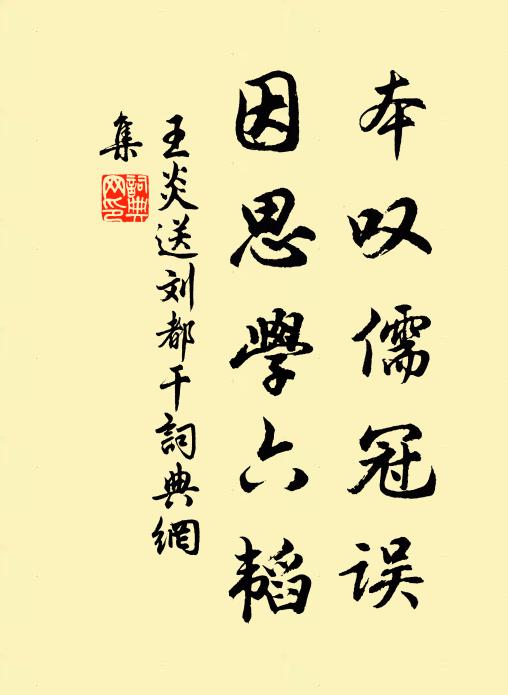 本叹儒冠误
因思學六韬
王炎送刘都干詞典網
集
詞典
网印